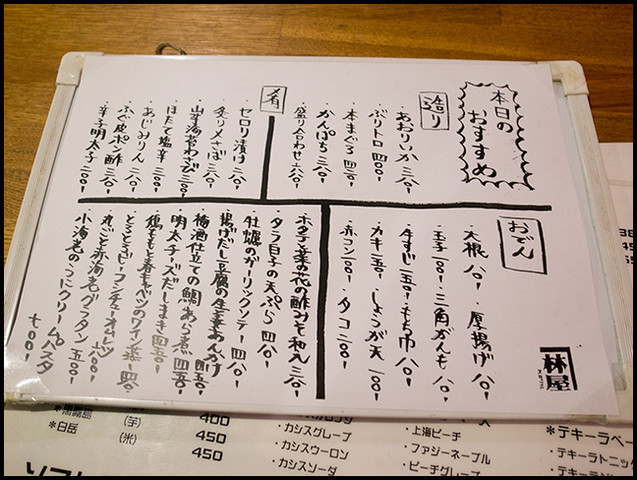 本日の
おすすめ
造り
・あおりいか 三八〇-
・ぶりトロ 四〇〇-
・本まぐろ 四二〇-
・かんぱち 三八〇-
・盛り合わせ 六八〇-
肴
・セロリ漬け 二八〇-
・炙りメさば 三八〇-
・山芋海苔わさび 二三〇-
・ほたて塩辛 三〇〇-
・あじみりん 二八〇-
・ふぐ皮ポン酢 三三〇-
・辛子明太子 三〇〇-
おでん
・大根 一八〇- ・厚揚げ 一八〇-
・玉子 一〇〇- ・三角がんも 一八〇-
・牛すじ 二五〇- ・もち巾 一八〇-
・カキ 二五〇- ・しょうが天 一〇〇-
・赤コン 一〇〇- ・タコ 二〇〇-
林屋
ホタテと菜の花の酢みそ和え 三八〇-
タラ白子の天ぷら 四八〇-
牡蠣のガーリックソテー 四八〇-
揚げだし豆腐の生姜あんかけ
梅酒仕立ての鯛あら煮 四五〇-
明太チーズだしまき 四五〇-
鶏ももと春キャベツのワイン蒸し 四八〇-
とろとろビーフシチューオムレツ 六八〇-
丸ごと赤海老グラタン 五八〇-
小海老のうにクリームパスタ
七〇〇-
＊黒霧島 (芋) 400
＊白岳 (米) 450
450
・カシスグレープ
・カシスウーロン
・カシスソーダ
・上海ピーチ
・ファジーネーブル
・ピーチグレープ
＊テキーラベー
・テキーラトニック